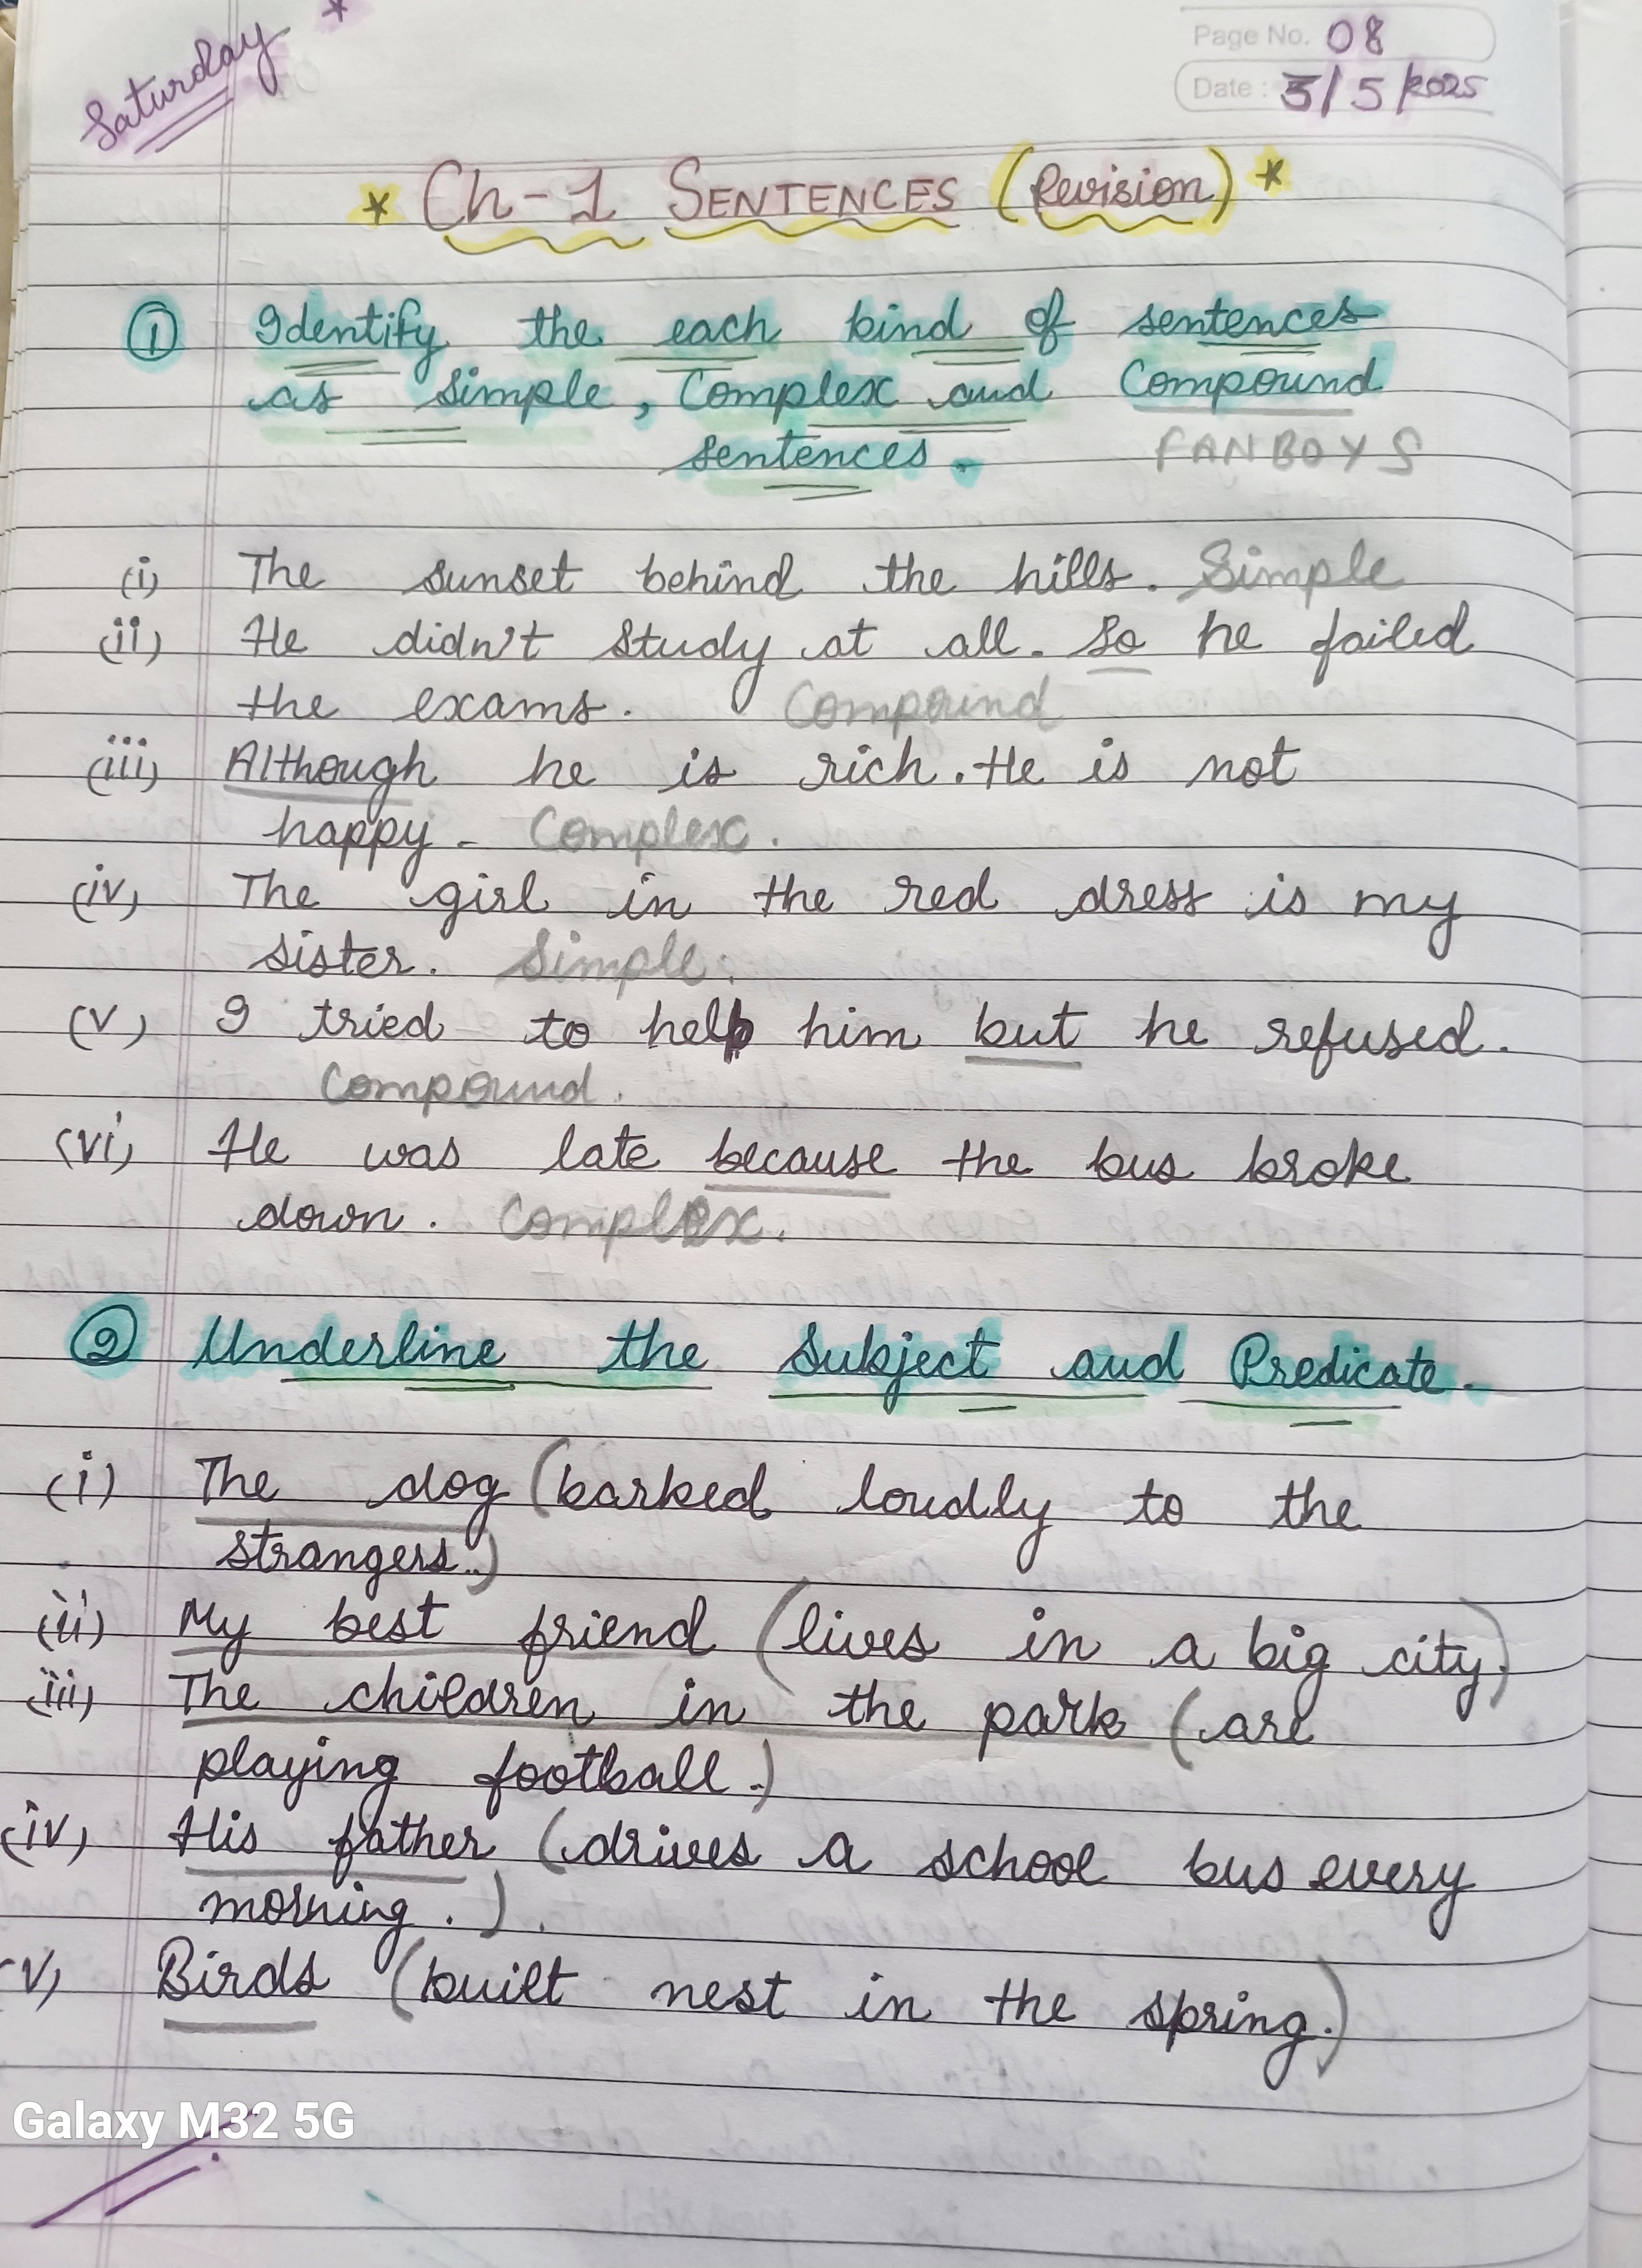 Saturday
Page No. 08
Date: 3/5/2025
* Ch-1 SENTENCES (Revision) *
① Identify the each kind of sentences
as Simple, Complex and Compound
sentences.
FANBOYS
(i) The sunset behind the hills. Simple
(ii) He didn't study at all. So he failed
the exams. Compound
(iii) Although he is rich. He is not
happy. Complex.
(iv) The girl in the red dress is my
sister. Simple.
(v) I tried to help him but he refused.
Compound.
(vi) He was late because the bus broke
down. Complex.
② Underline the Subject and Predicate.
(i) The dog (barked loudly to the
strangers..)
(ii) My best friend (lives in a big city.)
(iii) The children in the park (are
playing football.)
(iv) His father (drives a school bus every
morning.).
(v) Birds (built nest in the spring.)
Galaxy M32 5G